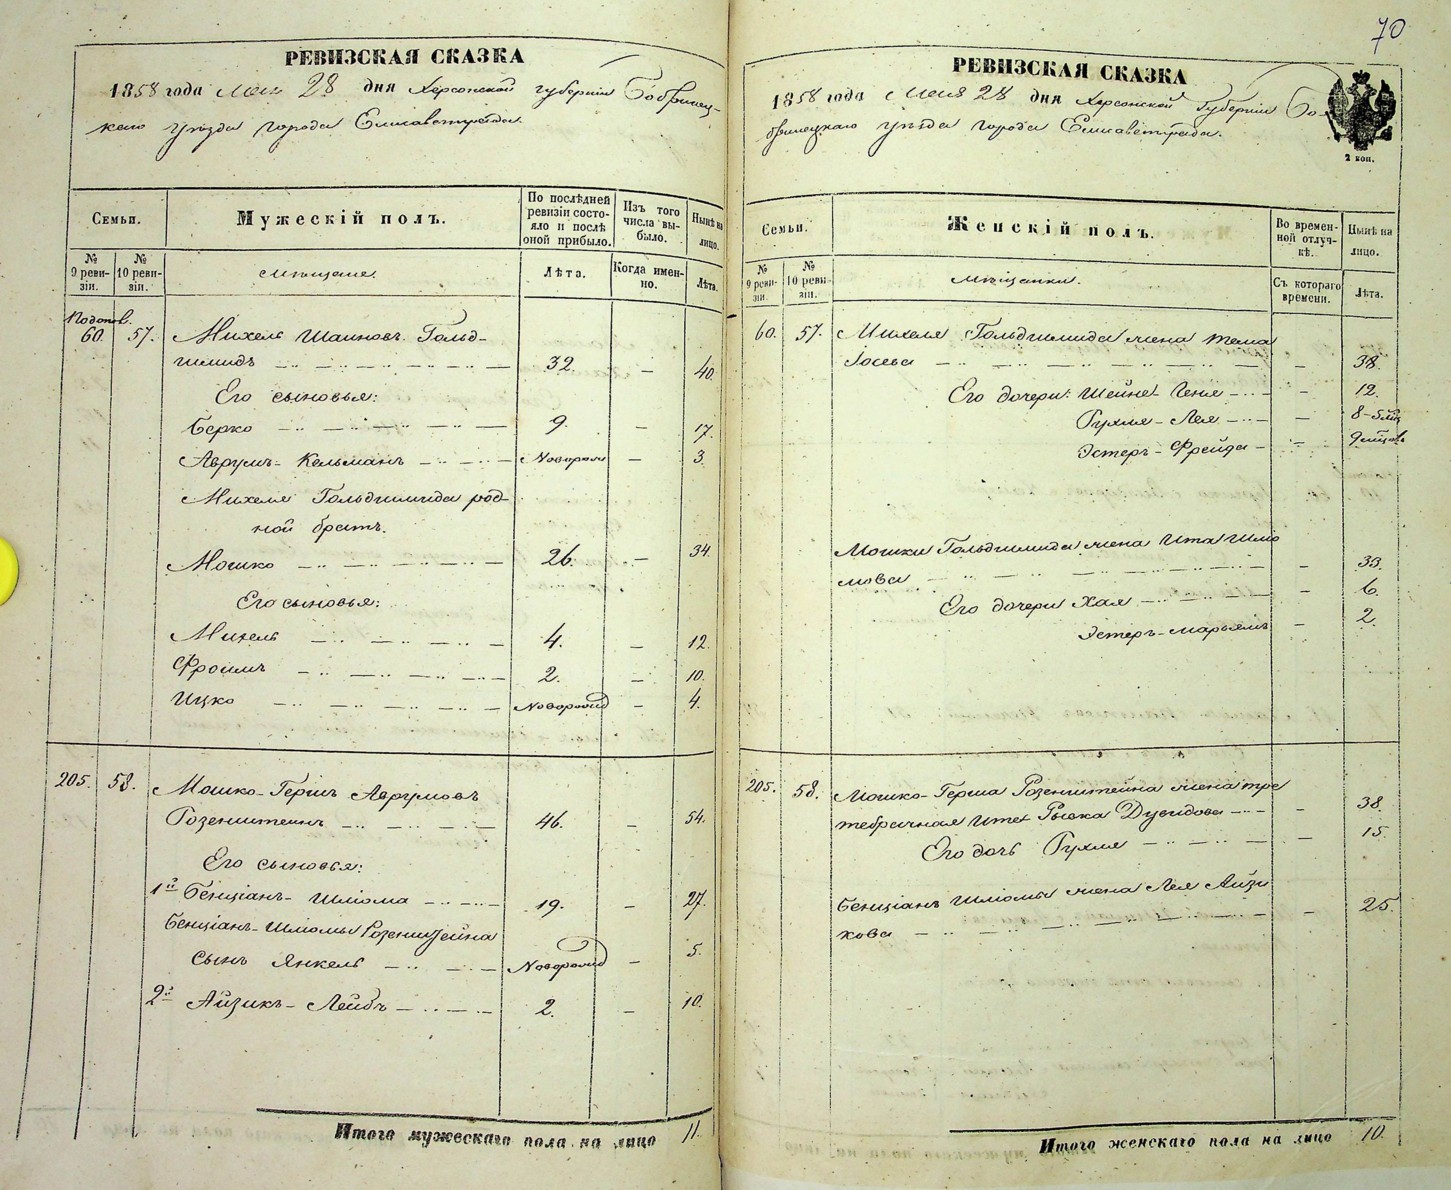 70
РЕВИЗСКАЯ СКАЗКА
1858 года Мая 28 дня Херсонской губерніи Бобринец-
каго уѣзда города Елисаветграда.
Семьи.
Мужескій полъ.
По послѣдней ревизіи состояло и послѣ оной прибыло.
Изъ того числа выбыло.
Нынѣ на лицо.
№ 9 ревизіи.
№ 10 ревизіи.
Мѣщане.
Лѣта.
Когда именно.
Лѣта.
60. 57. Михель Шаиновъ Гольд-
шмидъ 32 — 40.
Его сыновья:
Берко 9. — 17.
Аврумъ-Кельманъ Новорожд — 3.
Михеля Гольдшмида род-
ной братъ.
Мошко 26. — 34.
Его сыновья:
Михель 4. — 12.
Фроимъ 2. — 10.
Ицко Новорожд — 4.
205. 58. Мошко-Гершъ Аврумовъ
Розенштеинъ 46. — 54.
Его сыновья:
1й Бенціанъ-Шліома 19. — 27.
Бенціанъ-Шліомы Розенштейна
сынъ Янкель Новорожд — 5.
2й Айзикъ-Лейбъ 2. — 10.
Итого мужескаго пола на лицо 11.
РЕВИЗСКАЯ СКАЗКА
1858 года Мая 28 дня Херсонской Губерніи Бо-
бринецкаго уѣзда города Елисаветграда.
2 коп.
Семьи.
Женскій полъ.
Во временной отлучкѣ.
Нынѣ на лицо.
№ 9 ревизіи.
№ 10 ревизіи.
Мѣщанки.
Съ котораго времени.
Лѣта.
60. 57. Михеля Гольдшмида жена Тема
Іосева — 38.
Его дочери: Шейне Геня — 12.
Рухля-Лея — 8-
Эстеръ-Фрейда — 9 мѣсяц
Мошки Гольдшмида жена Ита Шмо
мова — 33.
Его дочери Хая — 6.
Эстеръ-Марьямъ — 2.
205. 58. Мошко-Герша Розенштейна жена тре
тебрачная Ите Рывка Дувидова — 38.
Его дочь Рухля — 15.
Бенціанъ Шліомы жена Лея Айзи
кова — 25.
Итого женскаго пола на лицо 10.